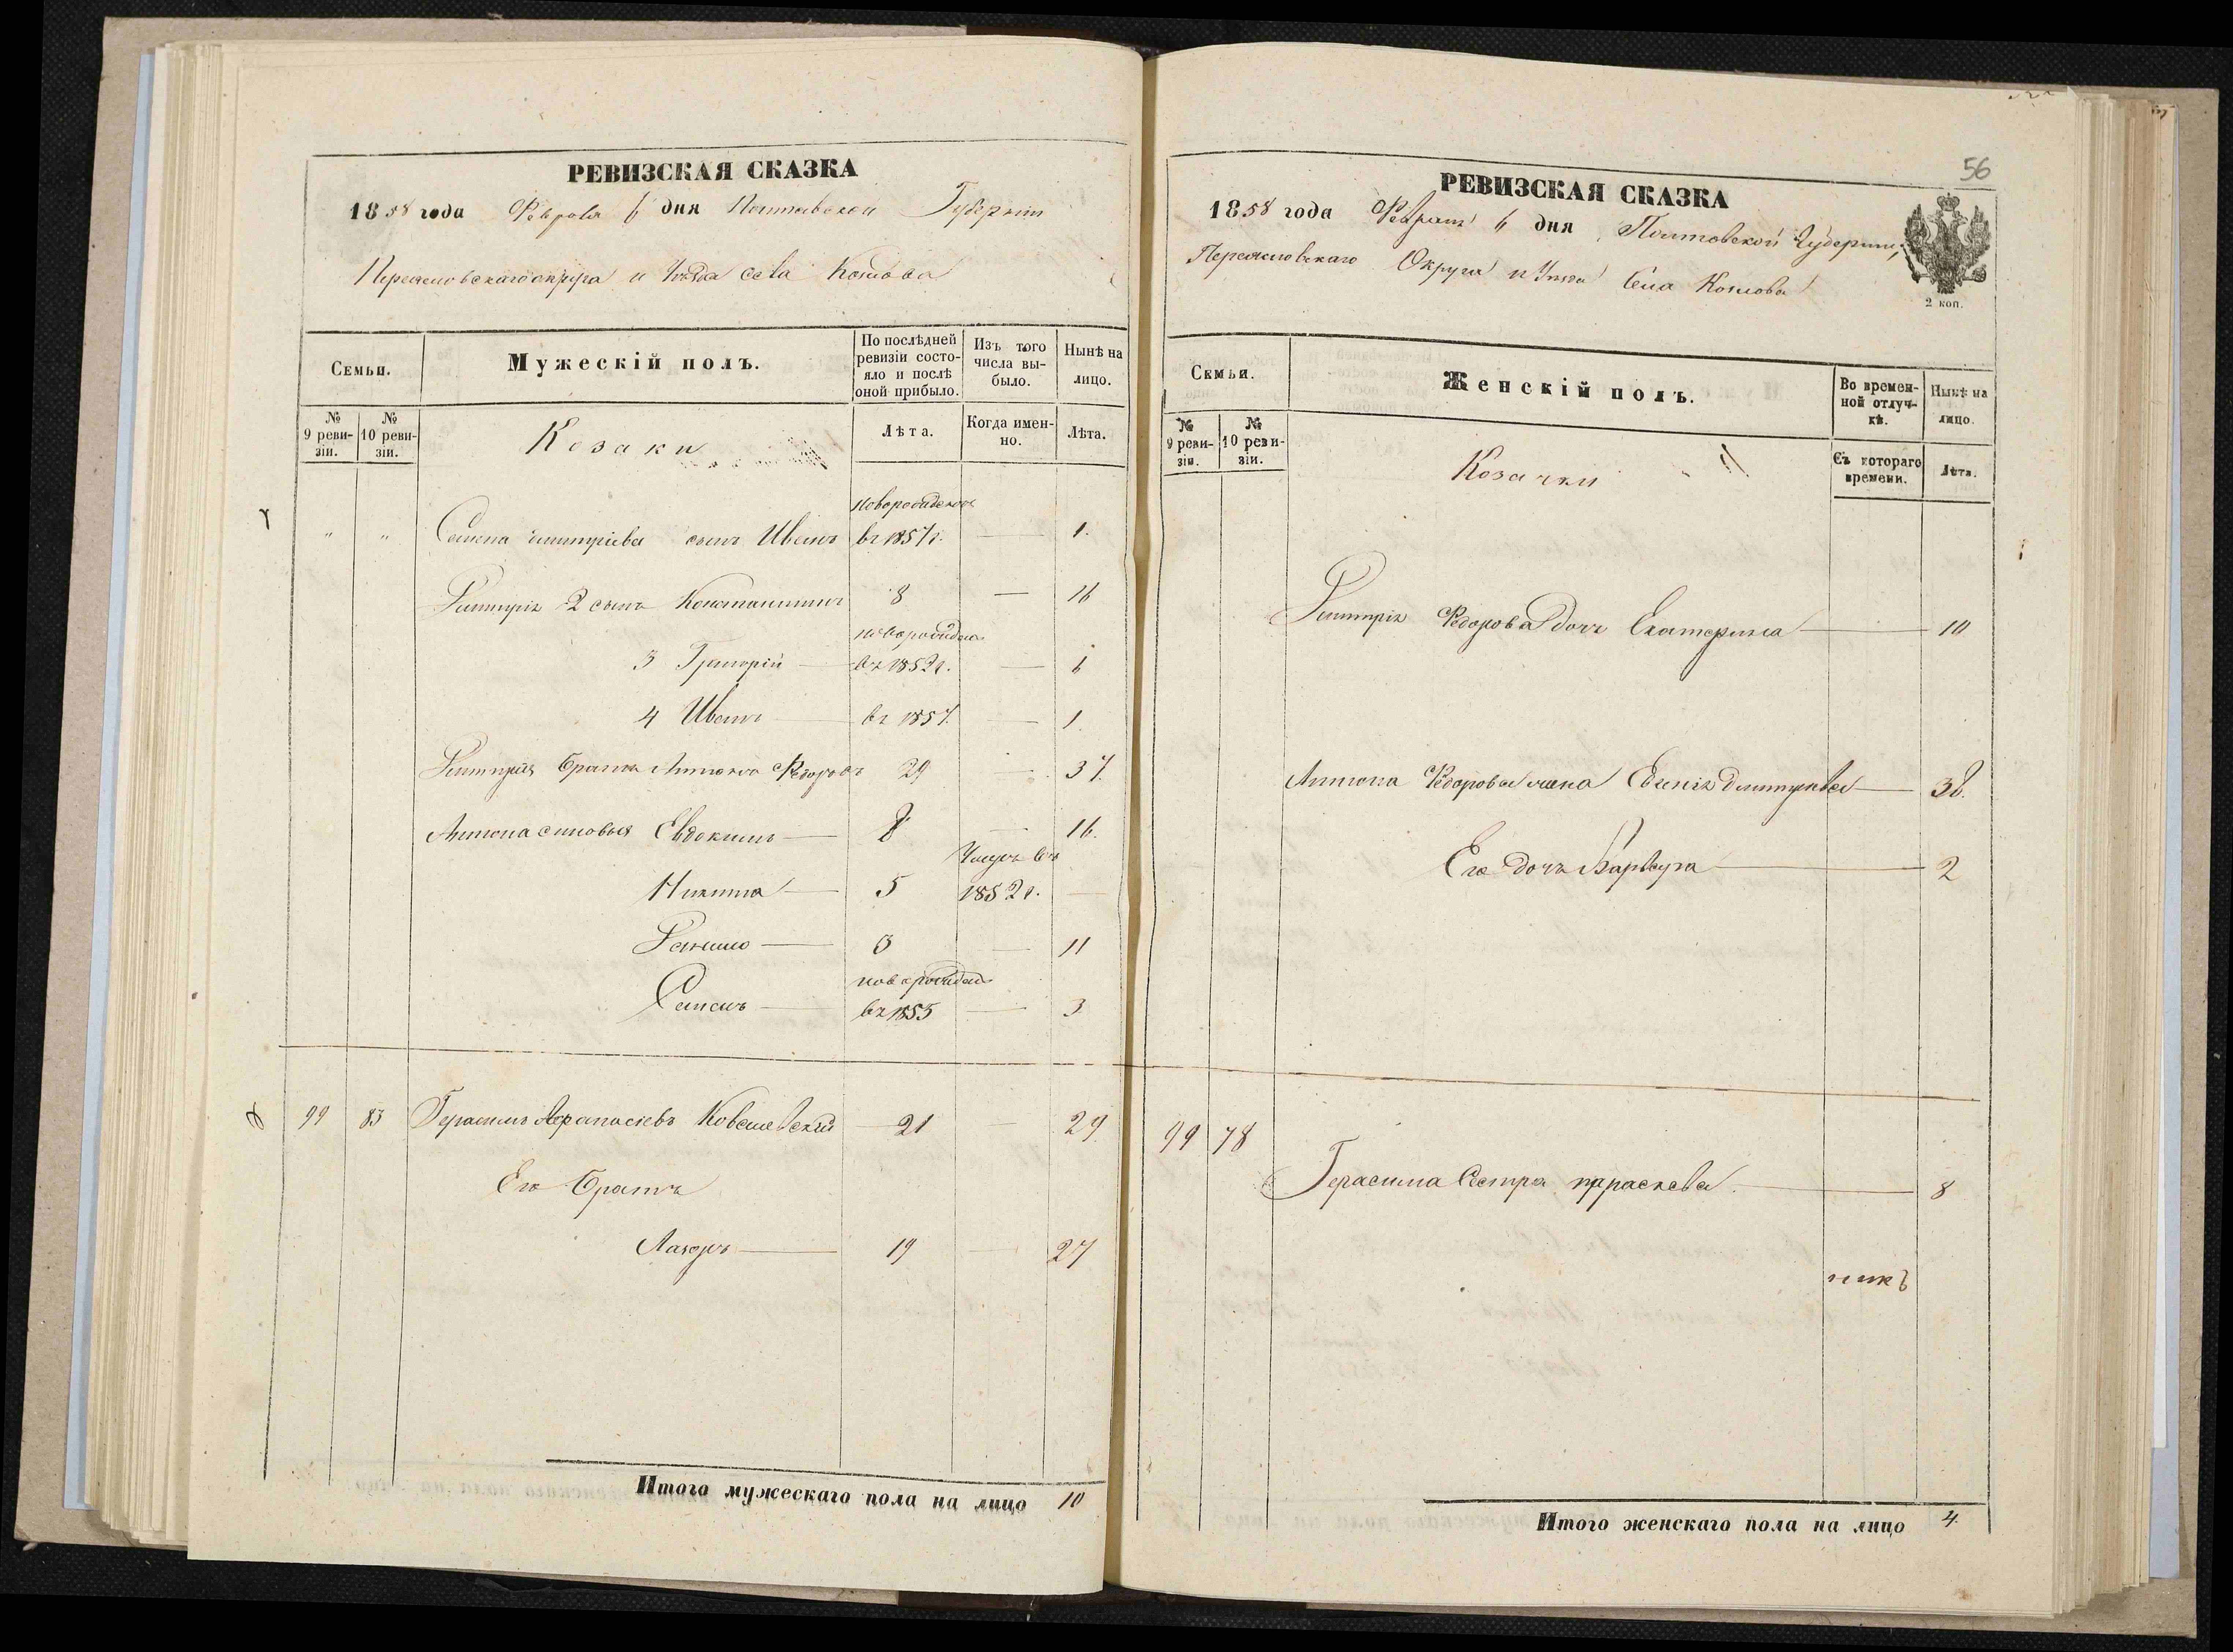 РЕВИЗСКАЯ СКАЗКА
1858 года Февраля 6 дня Полтавской Губерніи
Переяславскаго округа и Уезда села Козлова
Семьи.
Мужескій полъ.
По послѣдней ревизіи состояло и послѣ оной прибыло.
Изъ того числа выбыло.
Нынѣ на лицо.
№ 9 ревизіи.
№ 10 ревизіи.
Козаки
Лѣта.
Когда именно.
Лѣта.
новорожденъ
" " Семена Дмитріева сынъ Иванъ въ 1857 г. — 1.
Дмитрія 2 сынъ Константинъ 8 — 16
новорожден
3 Григорій — въ 1852 г. — 6
4 Иванъ — въ 1857. — 1
Дмитрія братъ Антонъ Федоровъ 29 — 37.
Антона синовья Евдокимъ — 8 — 16.
Никита — 5 Умеръ въ 1852 г. —
3 — 11
новорожден
Семенъ — въ 1855 — 3
99 83 Герасимъ Афанасіевъ 21 — 29
Его братъ
Лазоръ — 19 — 27
Итого мужескаго пола на лицо 10
56
РЕВИЗСКАЯ СКАЗКА
1858 года Февраля 6 дня Полтавской Губерніи,
Переяславскаго Округа и Уезда Села Козлова
2 коп.
Семьи.
Женскій полъ.
Во временной отлучкѣ.
Нынѣ на лицо.
№ 9 ревизіи.
№ 10 ревизіи.
Козачки
Съ котораго времени.
Лѣта.
Дмитрія Федорова дочь Екатерина — 10
Антона Федорова жена Евгенія Дмитриева — 38.
Его дочь Варвара — 2
99 78
Герасима Сестра параскева — 8
Итого женскаго пола на лицо 4.